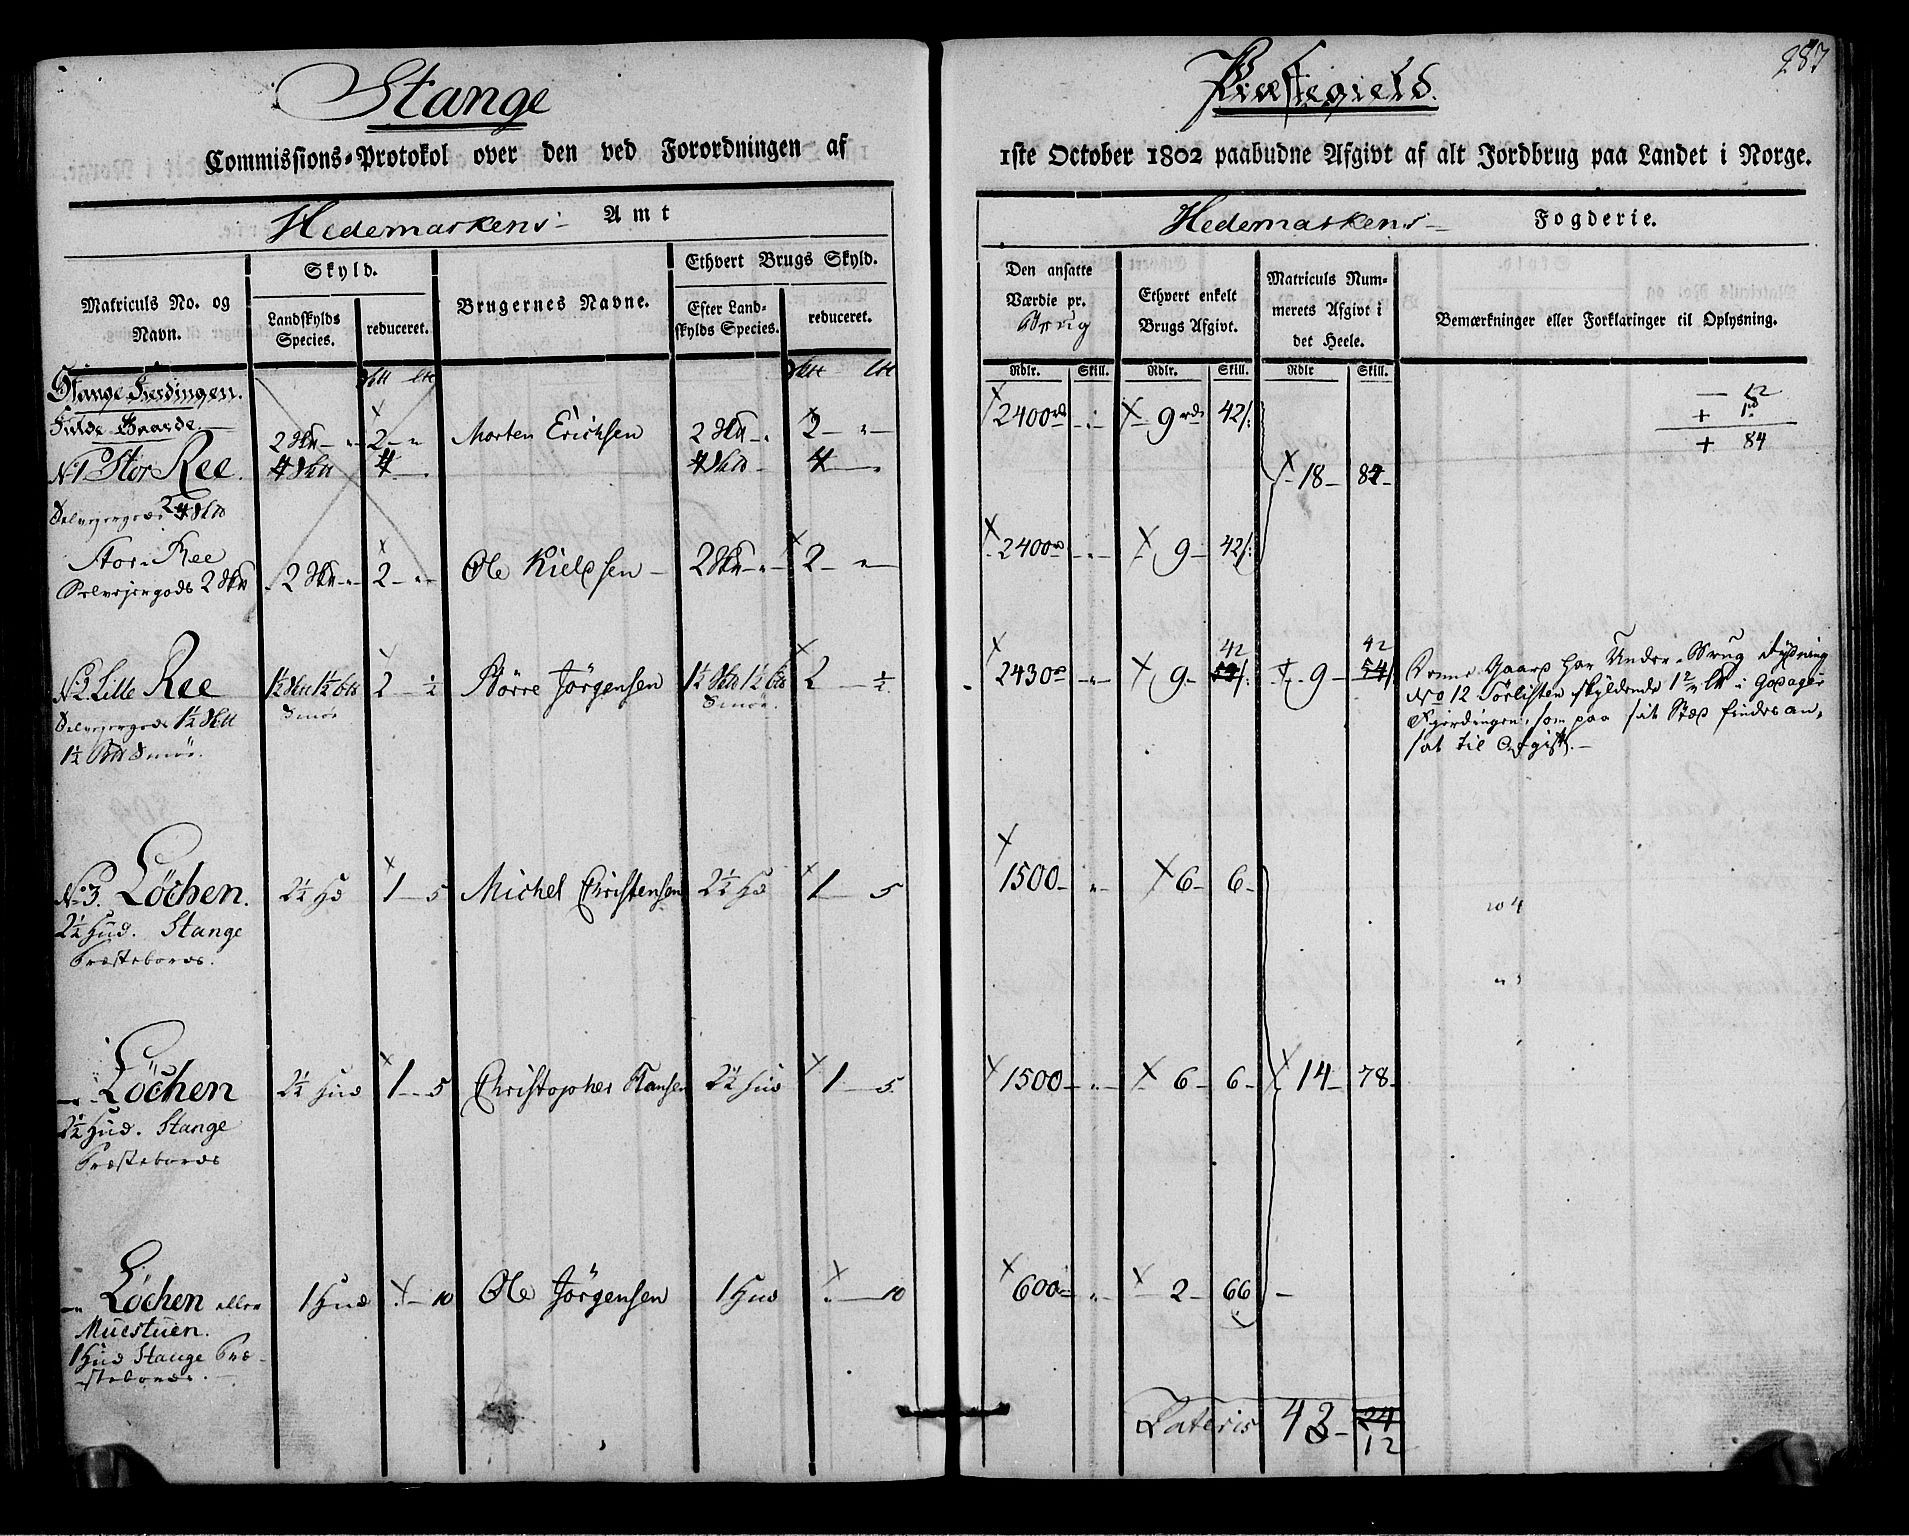 Stange
Præstegield.
287
Commissions-Protokol over den ved Forordningen af
1ste October 1802 paabudne Afgivt af alt Jordbrug paa Landet i Norge.
Hedemarkens Amt
Hedemarkens Fogderie.
Matriculs No. og Navn.
Skyld.
Landskylds Species.
reduceret.
Brugernes Navne.
Ethvert Brugs Skyld.
Efter Landskylds Species.
reduceret.
Den ansatte Værdie pr. Brug
Ethvert enkelt Brugs Afgivt.
Matriculs Nummerets Afgivt i det Heele.
Bemærkninger eller Forklaringer til Oplysning.
Rdlr. Skill. Rdlr. Skill. Rdlr Skill.
Stange Fierdingen.
Fulde Gaarde.
No 1 Stor Ree.
2 Skp 2 Morten Erichsen 2 Skp 2 2400 9 42
4 4 4 4 18 84
12
+ 1
+ 84
Stor Ree
Selvejergods 2 Skp 2 Skp 2 Ole Nielsen 2 Skp 2 2400 9 42
No 2 Lille Ree 1½ 1½ 2 ½ Börre Jörgensen 1½ 1½ 2 ½ 2430 9 54 42 9 54 42
Smör Smör
Selvejergods 1½
1½ Smör.
Denne Gaard har Under-Brug Dydning
No 12 Sörlisten skyldende i
Fjerdingen, som paa sit Stæd findes an-
sat til Afgift.
No 3. Löchen. 2½ Hd 1 5 Michel Christensen 2½ Hd 1 5 1500 6 6
2½ Hud. Stange
Præstebords.
Löchen 2½ Hud 1 5 Christopher Hansen 2½ Hud 1 5 1500 6 6 14 78
2½ Hud. Stange
Præstebords
Löchen eller 1 Hud 10 Ole Jörgensen 1 Hud 10 600 2 66
Muestuen.
1 Hud Stange Præ-
stebords.
Lateris 43 24
12